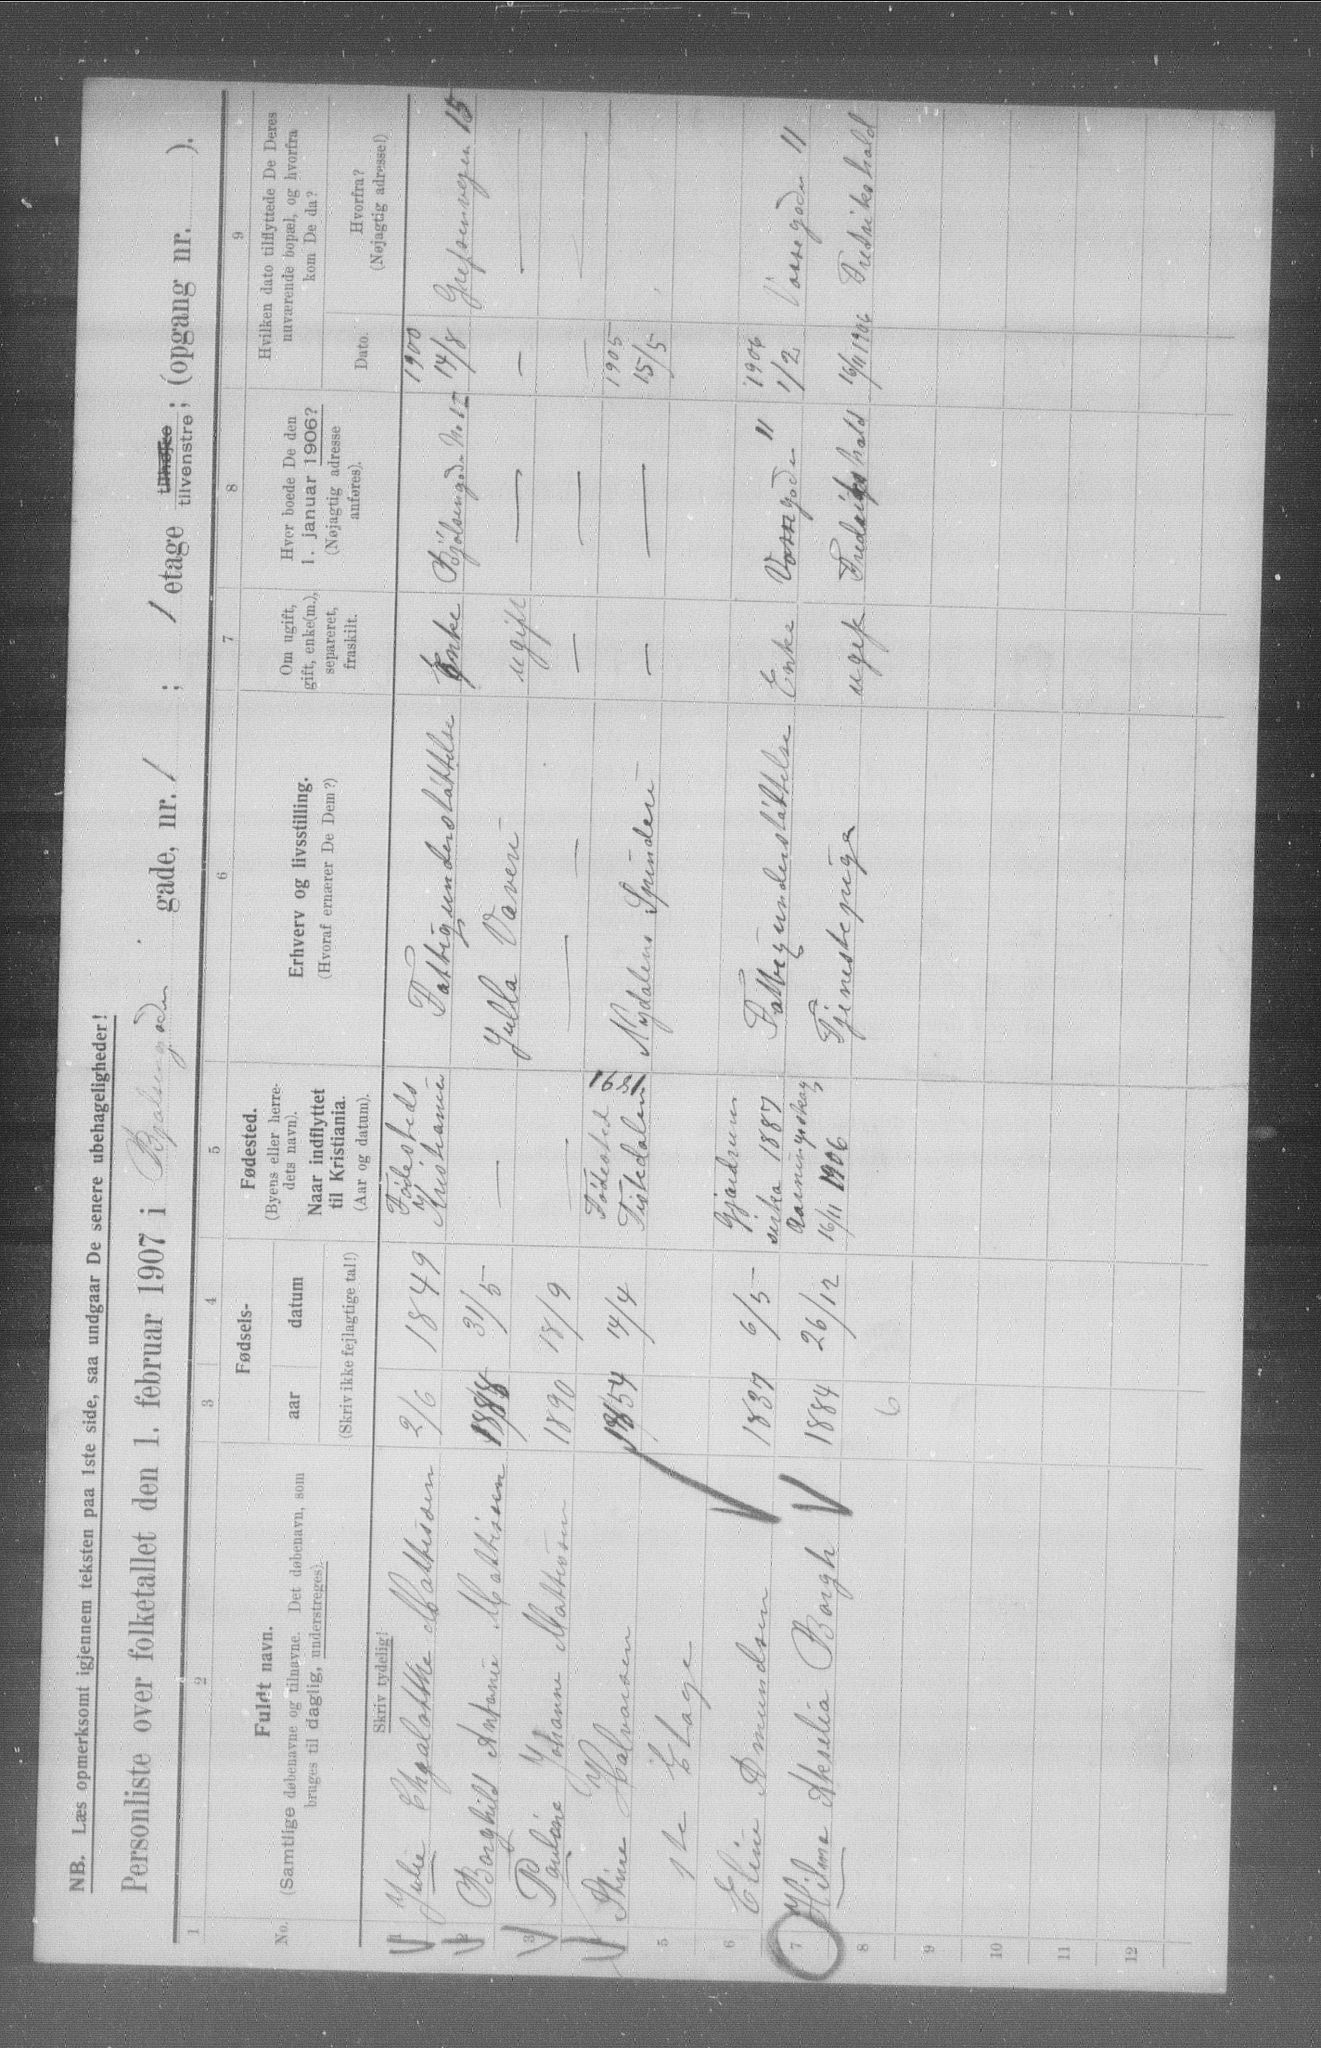 NB. Læs opmerksomt igjennem teksten paa 1ste side, saa undgaar De senere ubehageligheder!
Personliste over folketallet den 1. februar 1907 i Bjølsengaden gade, nr. 1 ; 1 etage tilhøjre tilvenstre ; (opgang nr. ).
1 2 3 4 5 6 7 8 9
No.
Fuldt navn.
(Samtlige døbenavne og tilnavne. Det døbenavn, som
bruges til daglig, understreges).
Skriv tydelig!
Fødsels-
aar datum
(Skriv ikke fejlagtige tal!)
Fødested.
(Byens eller herre-
dets navn).
Naar indflyttet
til Kristiania.
(Aar og datum).
Erhverv og livsstilling.
(Hvoraf ernærer De Dem?)
Om ugift,
gift, enke(m.),
separeret,
fraskilt.
Hvor boede De den
1. januar 1906?
(Nøjagtig adresse
anføres).
Hvilken dato tilflyttede De Deres
nuværende bopæl, og hvorfra
kom De da?
Dato.
Hvorfra?
(Nøjagtig adresse!)
1 Julie Mattisen 2/6 1849 Fødesteds Kristiania Fattigunderstøttelse Enke 1900 14/8 Grefsenvejen 15
2 Borghild Antonie Mattisen 31/5 — Julla Væveri ugift — — —
3 Pauline Johanne Mattisen 1890 18/9 — — — — — — —
4 Stine Halvorsen 1854 14/4 Fødested Tistedalen Nydalens Spinderi — — 1905 15/5
5 1ste Etage
6 Eline Amundsen 1837 6/5 Gjærdrum 1887 Fattigunderstøttelse Enke Vossegaden 11 1906 1/2 Vossegaden 11
7 Hilma Akselia Borgh 1884 26/12 16/11 1906 Tjenestepige ugift Fredrikshald 16/11 1906 Fredrikshald
8 6
9
10
11
12